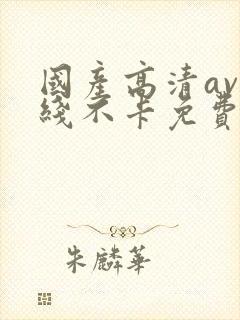 國產高清av
綫不卡免費
朱麟華